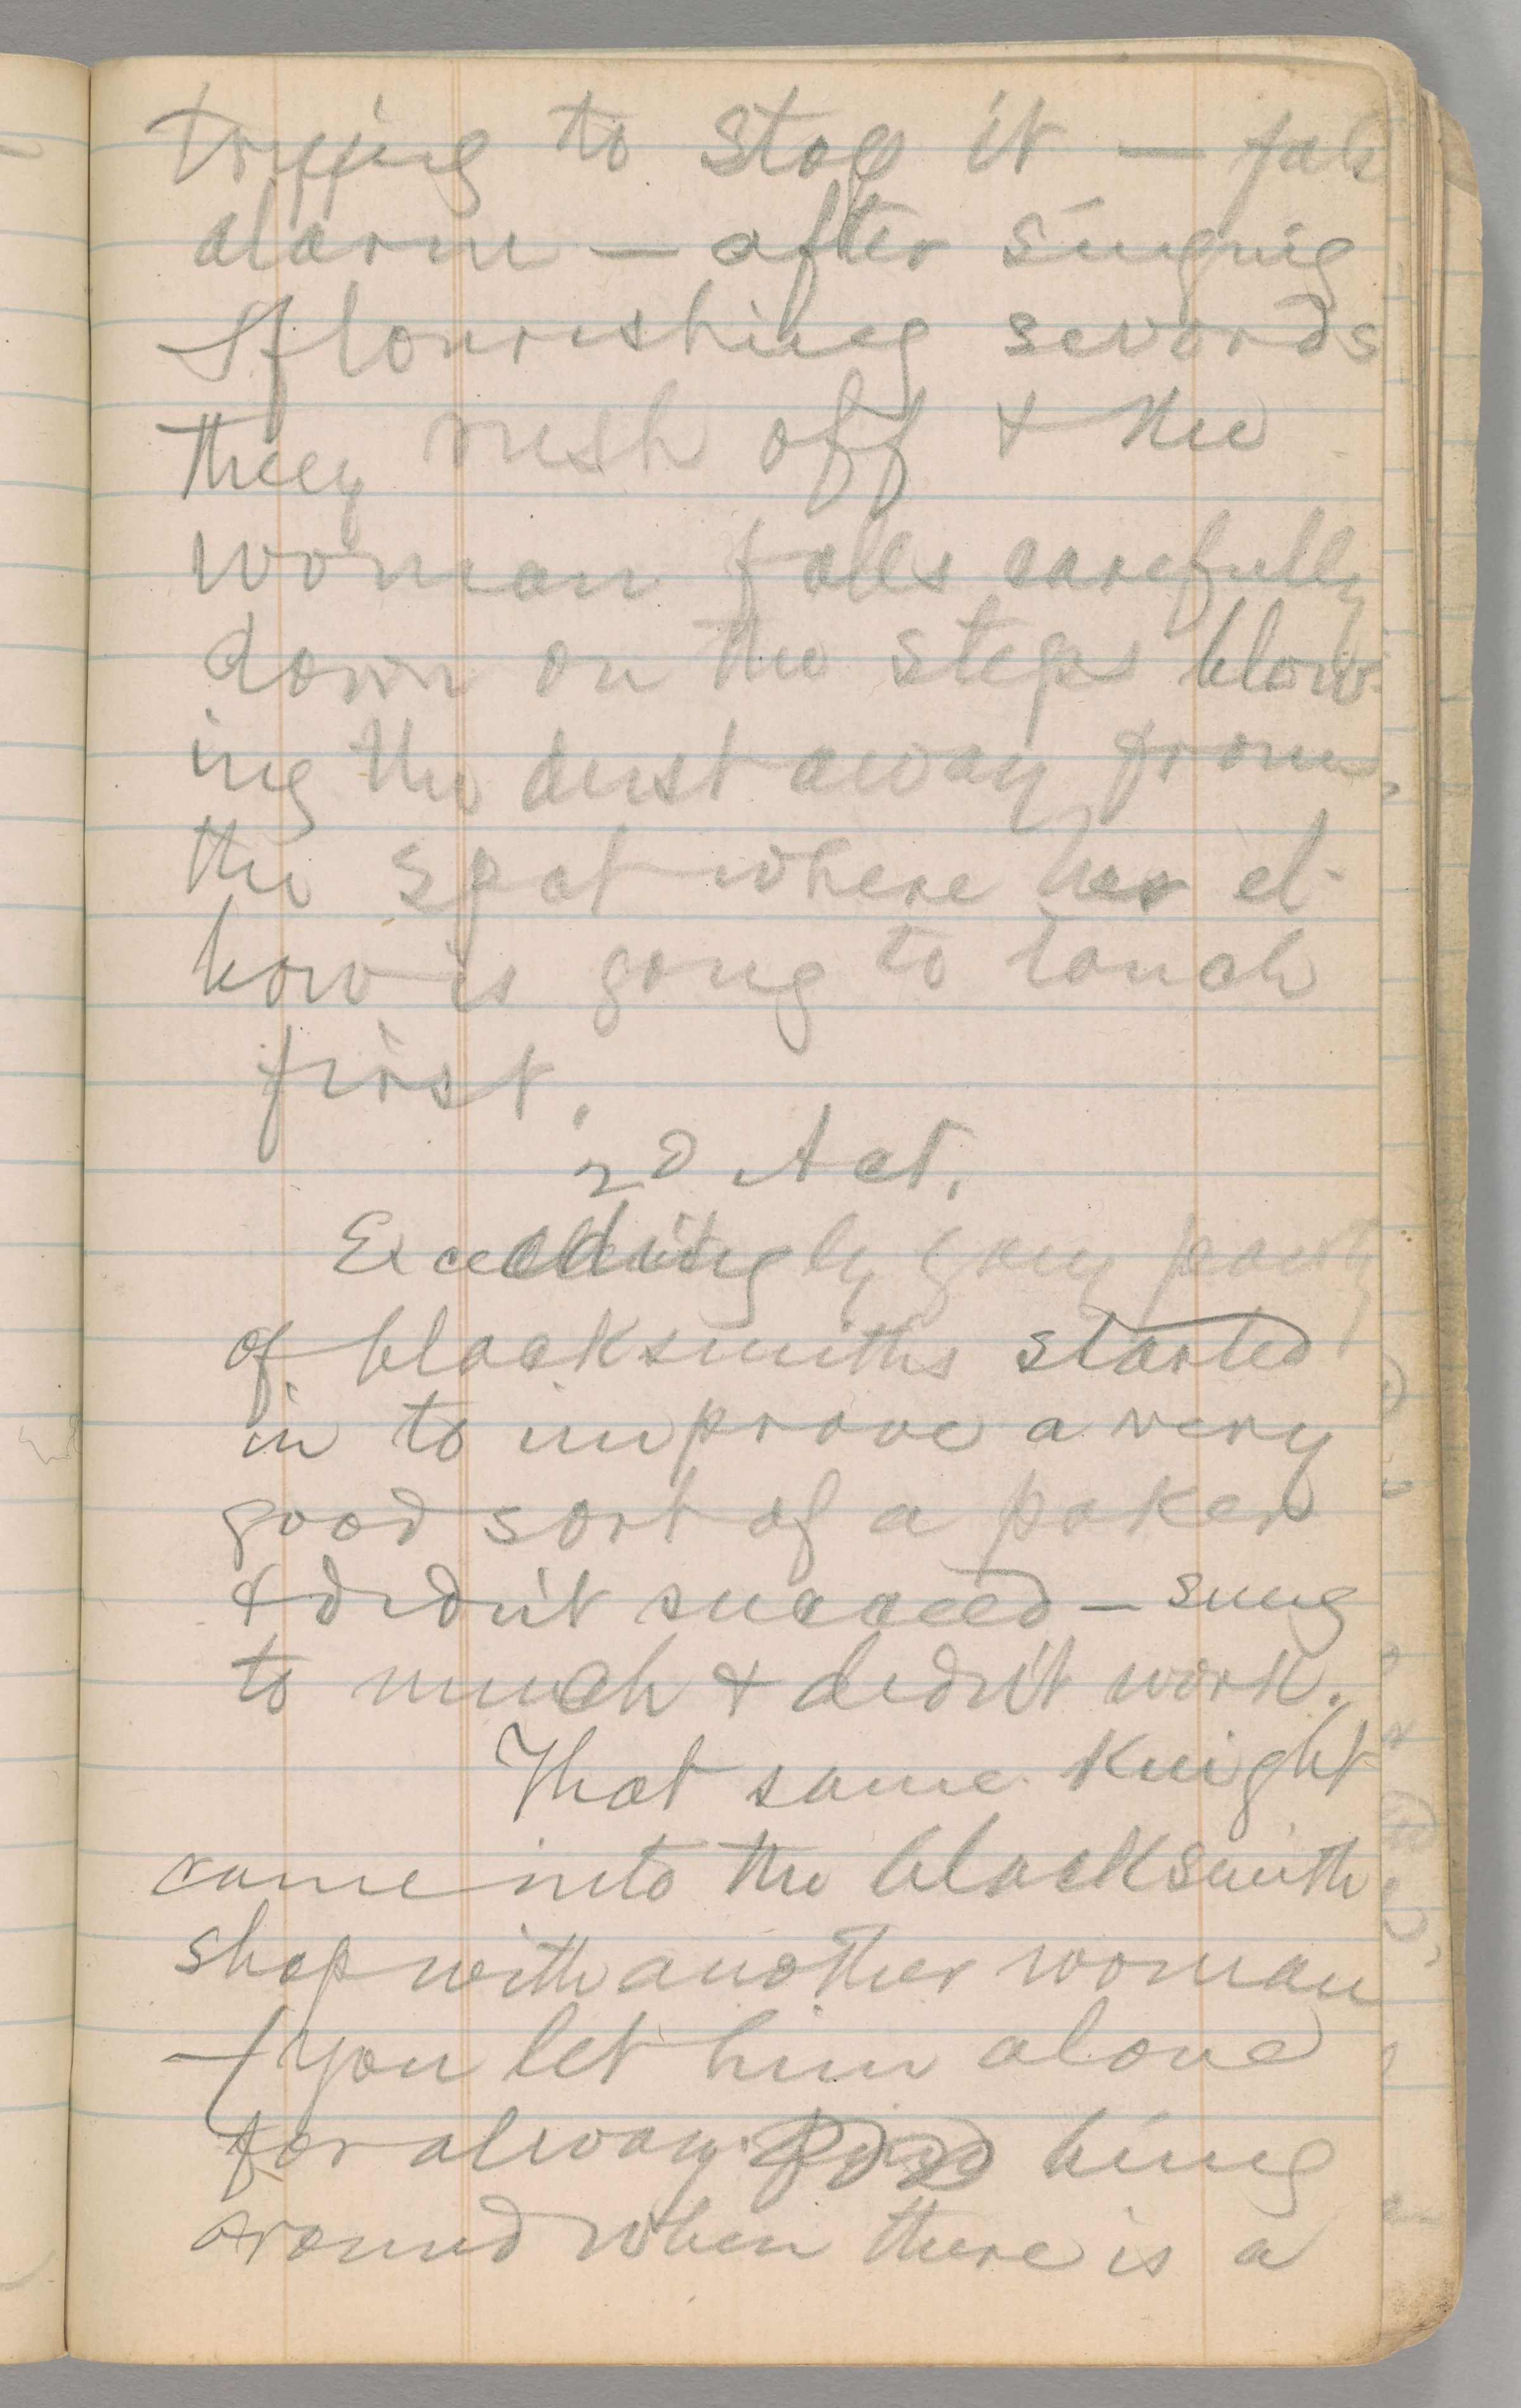 trying to stop it — fals
alarm — after singing
& flourishing swords
they rush off & the
woman falls carefully
down on the steps blow-
ing the dust away from
the spot where her el-
bow is going to touch
first.
2d Act.
Exceedingly gay party
of blacksmiths started
in to improve a very
good sort of a poker
& didn't succeed — sung
to much & didn't work.
That same Knight
came into the blacksmith
shop with another woman
— (you let him alone
for always being
around when there is a